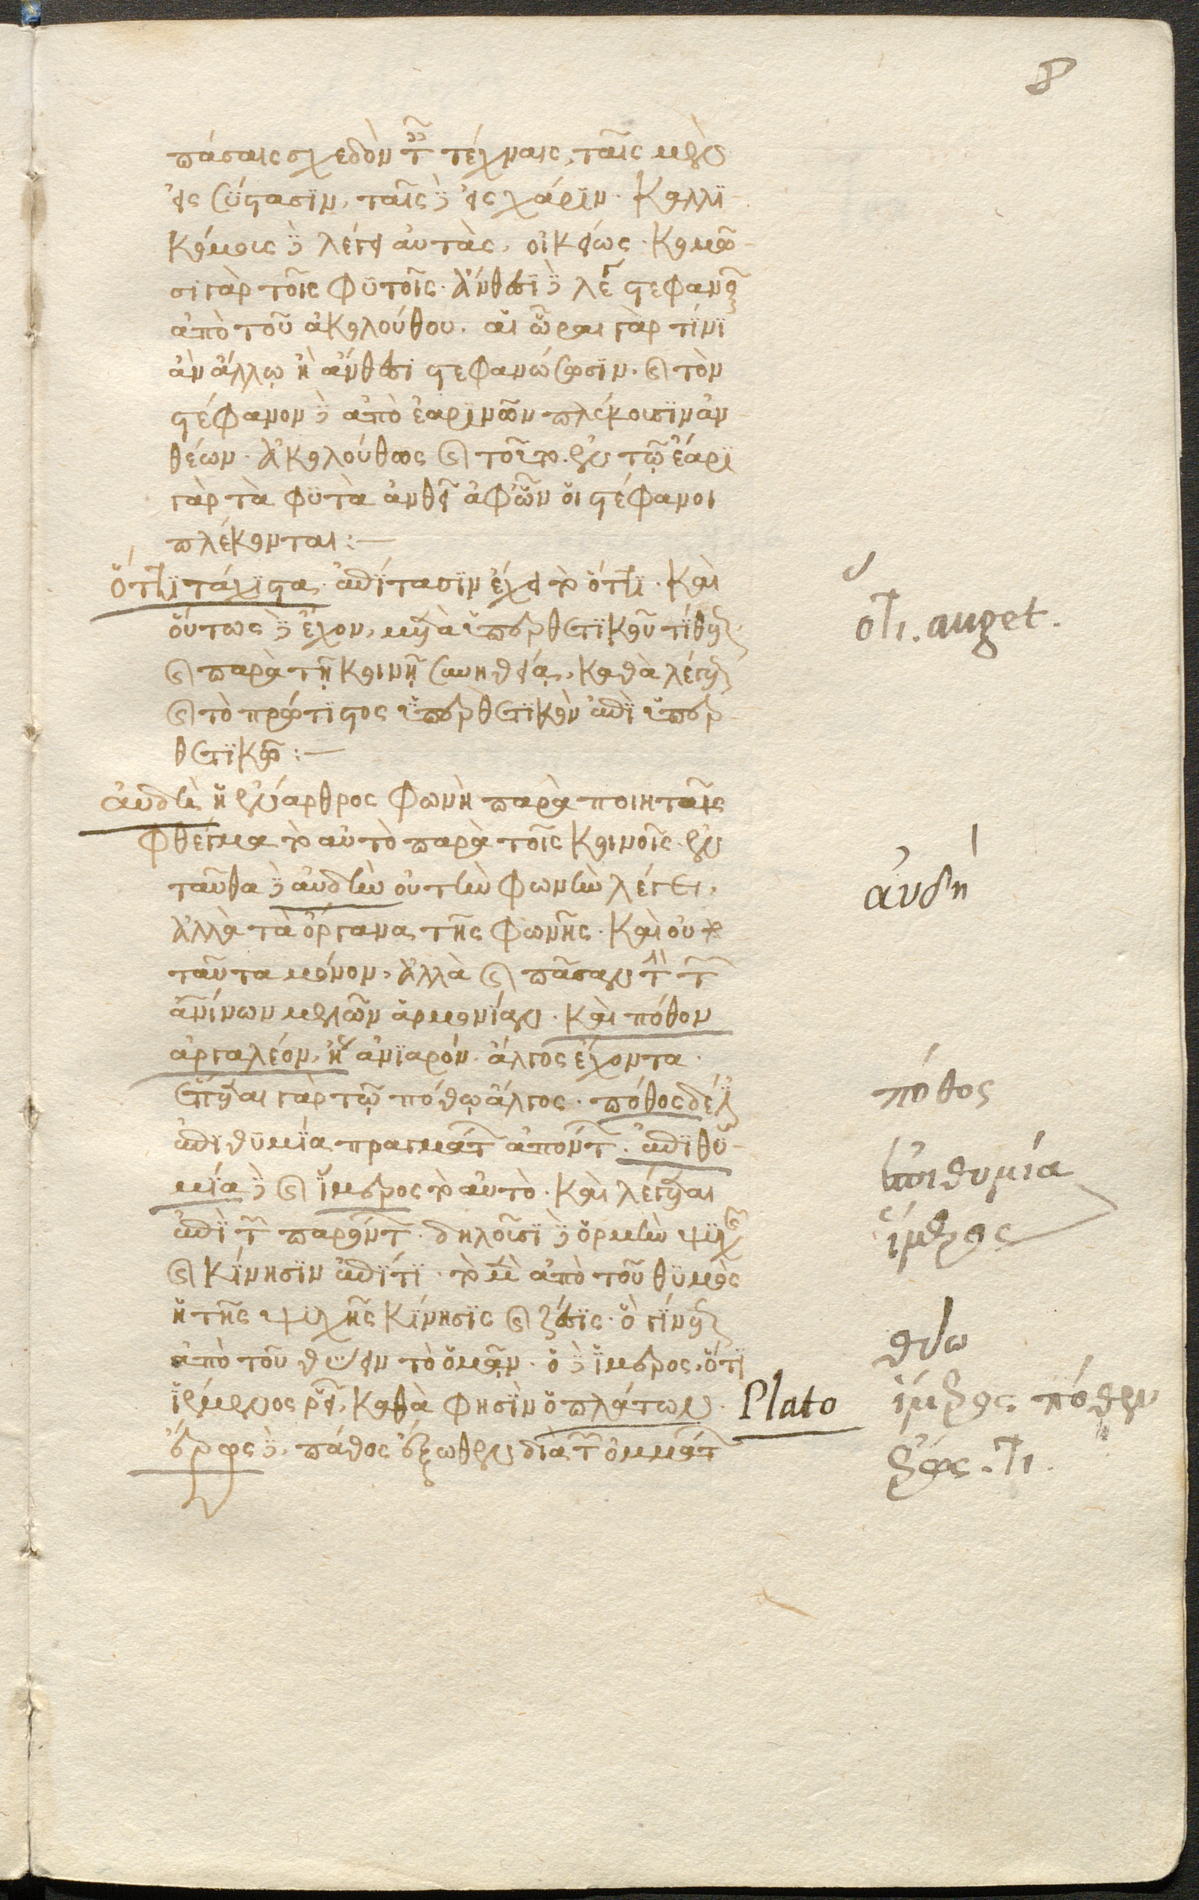 8
πάσαις σχεδὸν τ τέχναις, ταῖς μὲν
εἰς σύστασιν, ταῖς δὲ εἰς χάριν. Καλλι
κόμοις δὲ λέγει αὐτὰς, οἰκείως. Κομῶ
σι γὰρ τοῖς φυτοῖς. ἄνθεσι δὲ λέγει στεφανοῦν
ἀπὸ τοῦ ἀκολούθου. αἱ ὧραι γὰρ τίνι
ἂν ἄλλῳ ἢ ἄνθεσι στεφανώσωσιν. καὶ τὸν
στέφανον δὲ ἀπὸ ἐαρινῶν πλέκουσιν ἀν
θέων. ἀκολούθως καὶ τοῦτο. ἐν τῷ ἔαρι
γὰρ τὰ φυτὰ ἀνθεῖ ἀφ' ὧν οἱ στέφανοι
πλέκονται:—
ὅττι τάχιστα. ἐπίτασιν ἔχει τὸ ὅττι. Καὶ
οὕτως δὲ ἔχον, μετὰ ὑπερθετικοῦ τίθεται
καὶ παρὰ τῇ κοινῇ συνηθείᾳ, καθὰ λέγεται
καὶ τὸ πρώτιστος ὑπερθετικὸν ἐπὶ ὑπερ
θετικῶ:—
αὐδὴ ἡ ἔναρθρος φωνὴ παρὰ ποιηταῖς
φθέγμα τὸ αὐτὸ παρὰ τοῖς κοινοῖς. ἐν
ταῦθα δὲ αὐδὴν οὐ τὴν φωνὴν λέγει,
ἀλλὰ τὰ ὄργανα τῆς φωνῆς. Καὶ οὐ
ταῦτα μόνον, ἀλλὰ καὶ πᾶσαν τὴν τῶν
ἀνίνων μελῶν ἁρμονίαν. καὶ πόθον
ἀργαλέον, ἢ ἀνιαρόν. ἄλγος ἔχοντα.
ἕπεται γὰρ τῷ πόθῳ ἄλγος. πόθος δέ ἐστιν
ἐπιθυμία πραγμάτων ἀπόντων. ἐπιθυ
μία δὲ καὶ ἵμερος τὸ αὐτό. Καὶ λέγεται
ἐπὶ τῶν παρόντων. δηλοῦσι δὲ ὁρμὴν ψυχῆς
καὶ κίνησιν ἐπί τι. τὸ μὲν ἀπὸ τοῦ θυμὸς
ἡ τῆς ψυχῆς κίνησις καὶ ζέσις. ὃ γίνεται
ἀπὸ τοῦ θύειν τὸ ὁρμᾶν. ὁ δὲ ἵμερος, ὅτι
ἱέμενος ῥεῖ, καθὰ φησὶν ὁ πλάτων.
ἔρως δὲ, πάθος ἔξωθεν διὰ τῶν ὀμμάτων
ὅτι. auget.
ἀυδή
πόθος
ἐπιθυμία
ἵμερος
θύω
Plato
ἵμερος. πόθεν
ἔρως. τι.